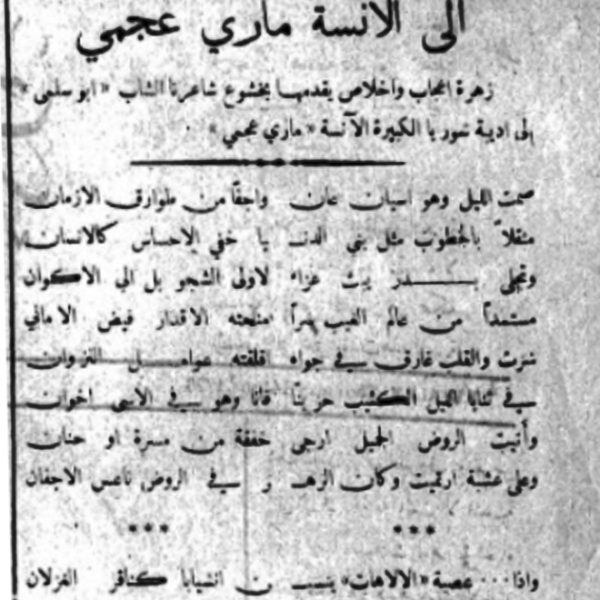 الى الآنسة ماري عجمي
زهرة اعجاب واخلاص يقدمها بخشوع شاعرنا الشاب «ابو سلمى»
الى اديبة سوريا الكبيرة الآنسة «ماري عجمي»
صمت الليل وهو اسيان عان واجفًا من طوارق الازمان
مثقلاً بالخطوب مثل بني الدنـ ـيا خفي الاحساس كالانسان
وتجلى بـدر يبث عزاء لاولى الشجو بل الى الاكوان
مستمداً من عالم الغيب سراً منحته الاقدار فيض الاماني
سرت والقلب غارق في جواه اقلقته عوامل
في ثنايا الليل الكئيب حزينًا فانا وهو في الاسى اخوان
وأتيت الروض الجميل ارجي خفقة من مسرة او حنان
وعلى عشبة ارتميت وكان الزهـ ـر في الروض ناعس الاجفان
*** ***
واذا ... عصبة «الالاهات» ينسبـ ـن انسيابا كنافر الغزلان